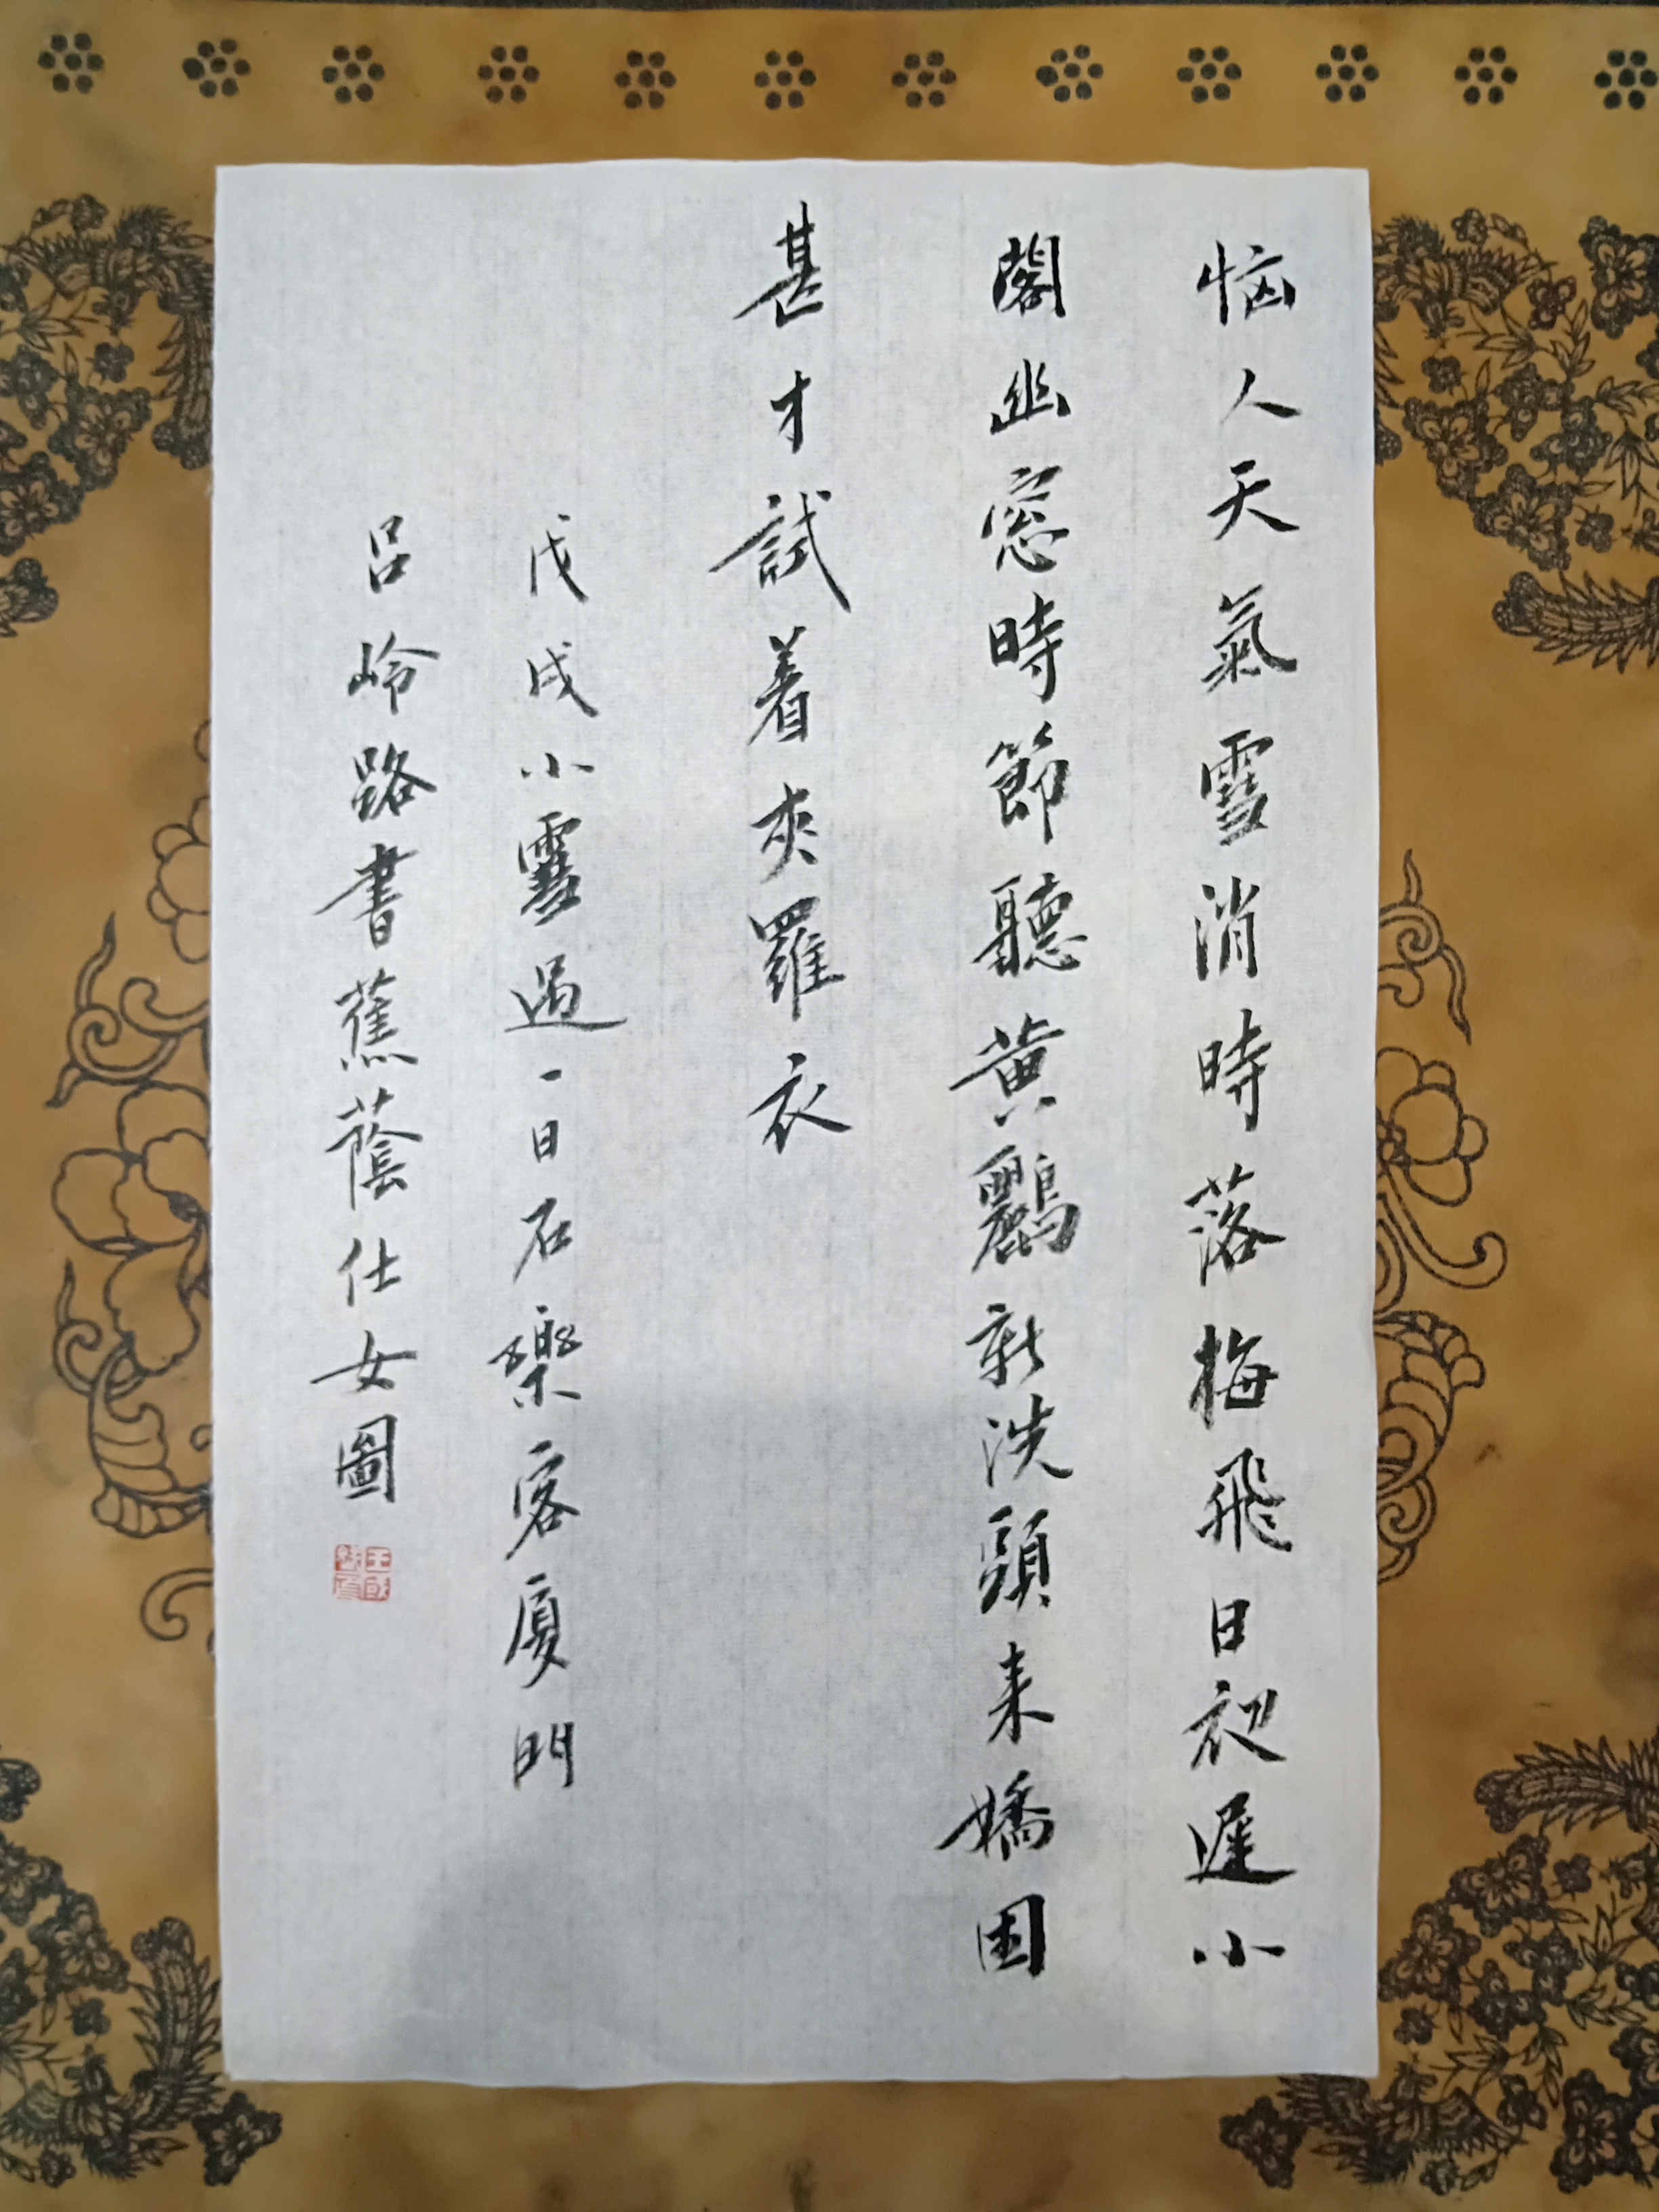 惱人天氣雪消時落梅飛日初遲小
閣幽窓時節聽黄鸝新洗頭来嬌困
甚才試着夾羅衣
戊戌小雪過一日石樂客廈門
呂岭路書蕉蔭仕女圖